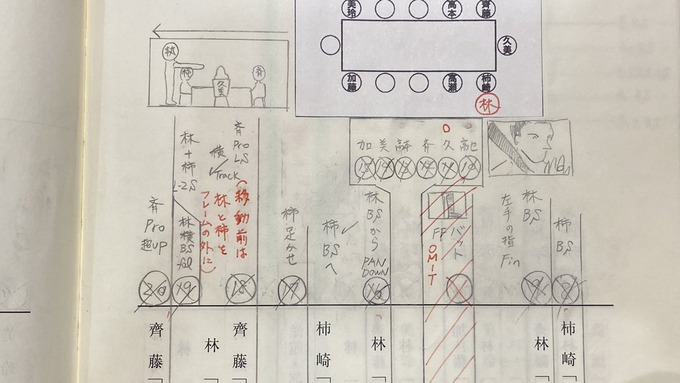 美玲
高本
齊藤
久美
加藤
高瀬
柿崎
林
林
柿
久美
斉
加 美 斉 久 高
林+柿
2S
斉 Pro LS
横 Track
(移動前は
林と柿を
フレームの外に)
斉 Pro
超UP
林横BS
柿足かせ
柿BSへ
林BSから
PAN DOWN
バット
FP
OMIT
左手の指 Fin
林BS
柿BS
20
19
18
17
16
齊藤「
林「
齊藤「
柿崎「
林「
林「
柿崎「